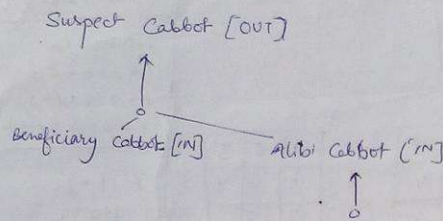 Suspect Cabbot [OUT]
Beneficiary Cabbot [IN]
Alibi Cabbot [IN]